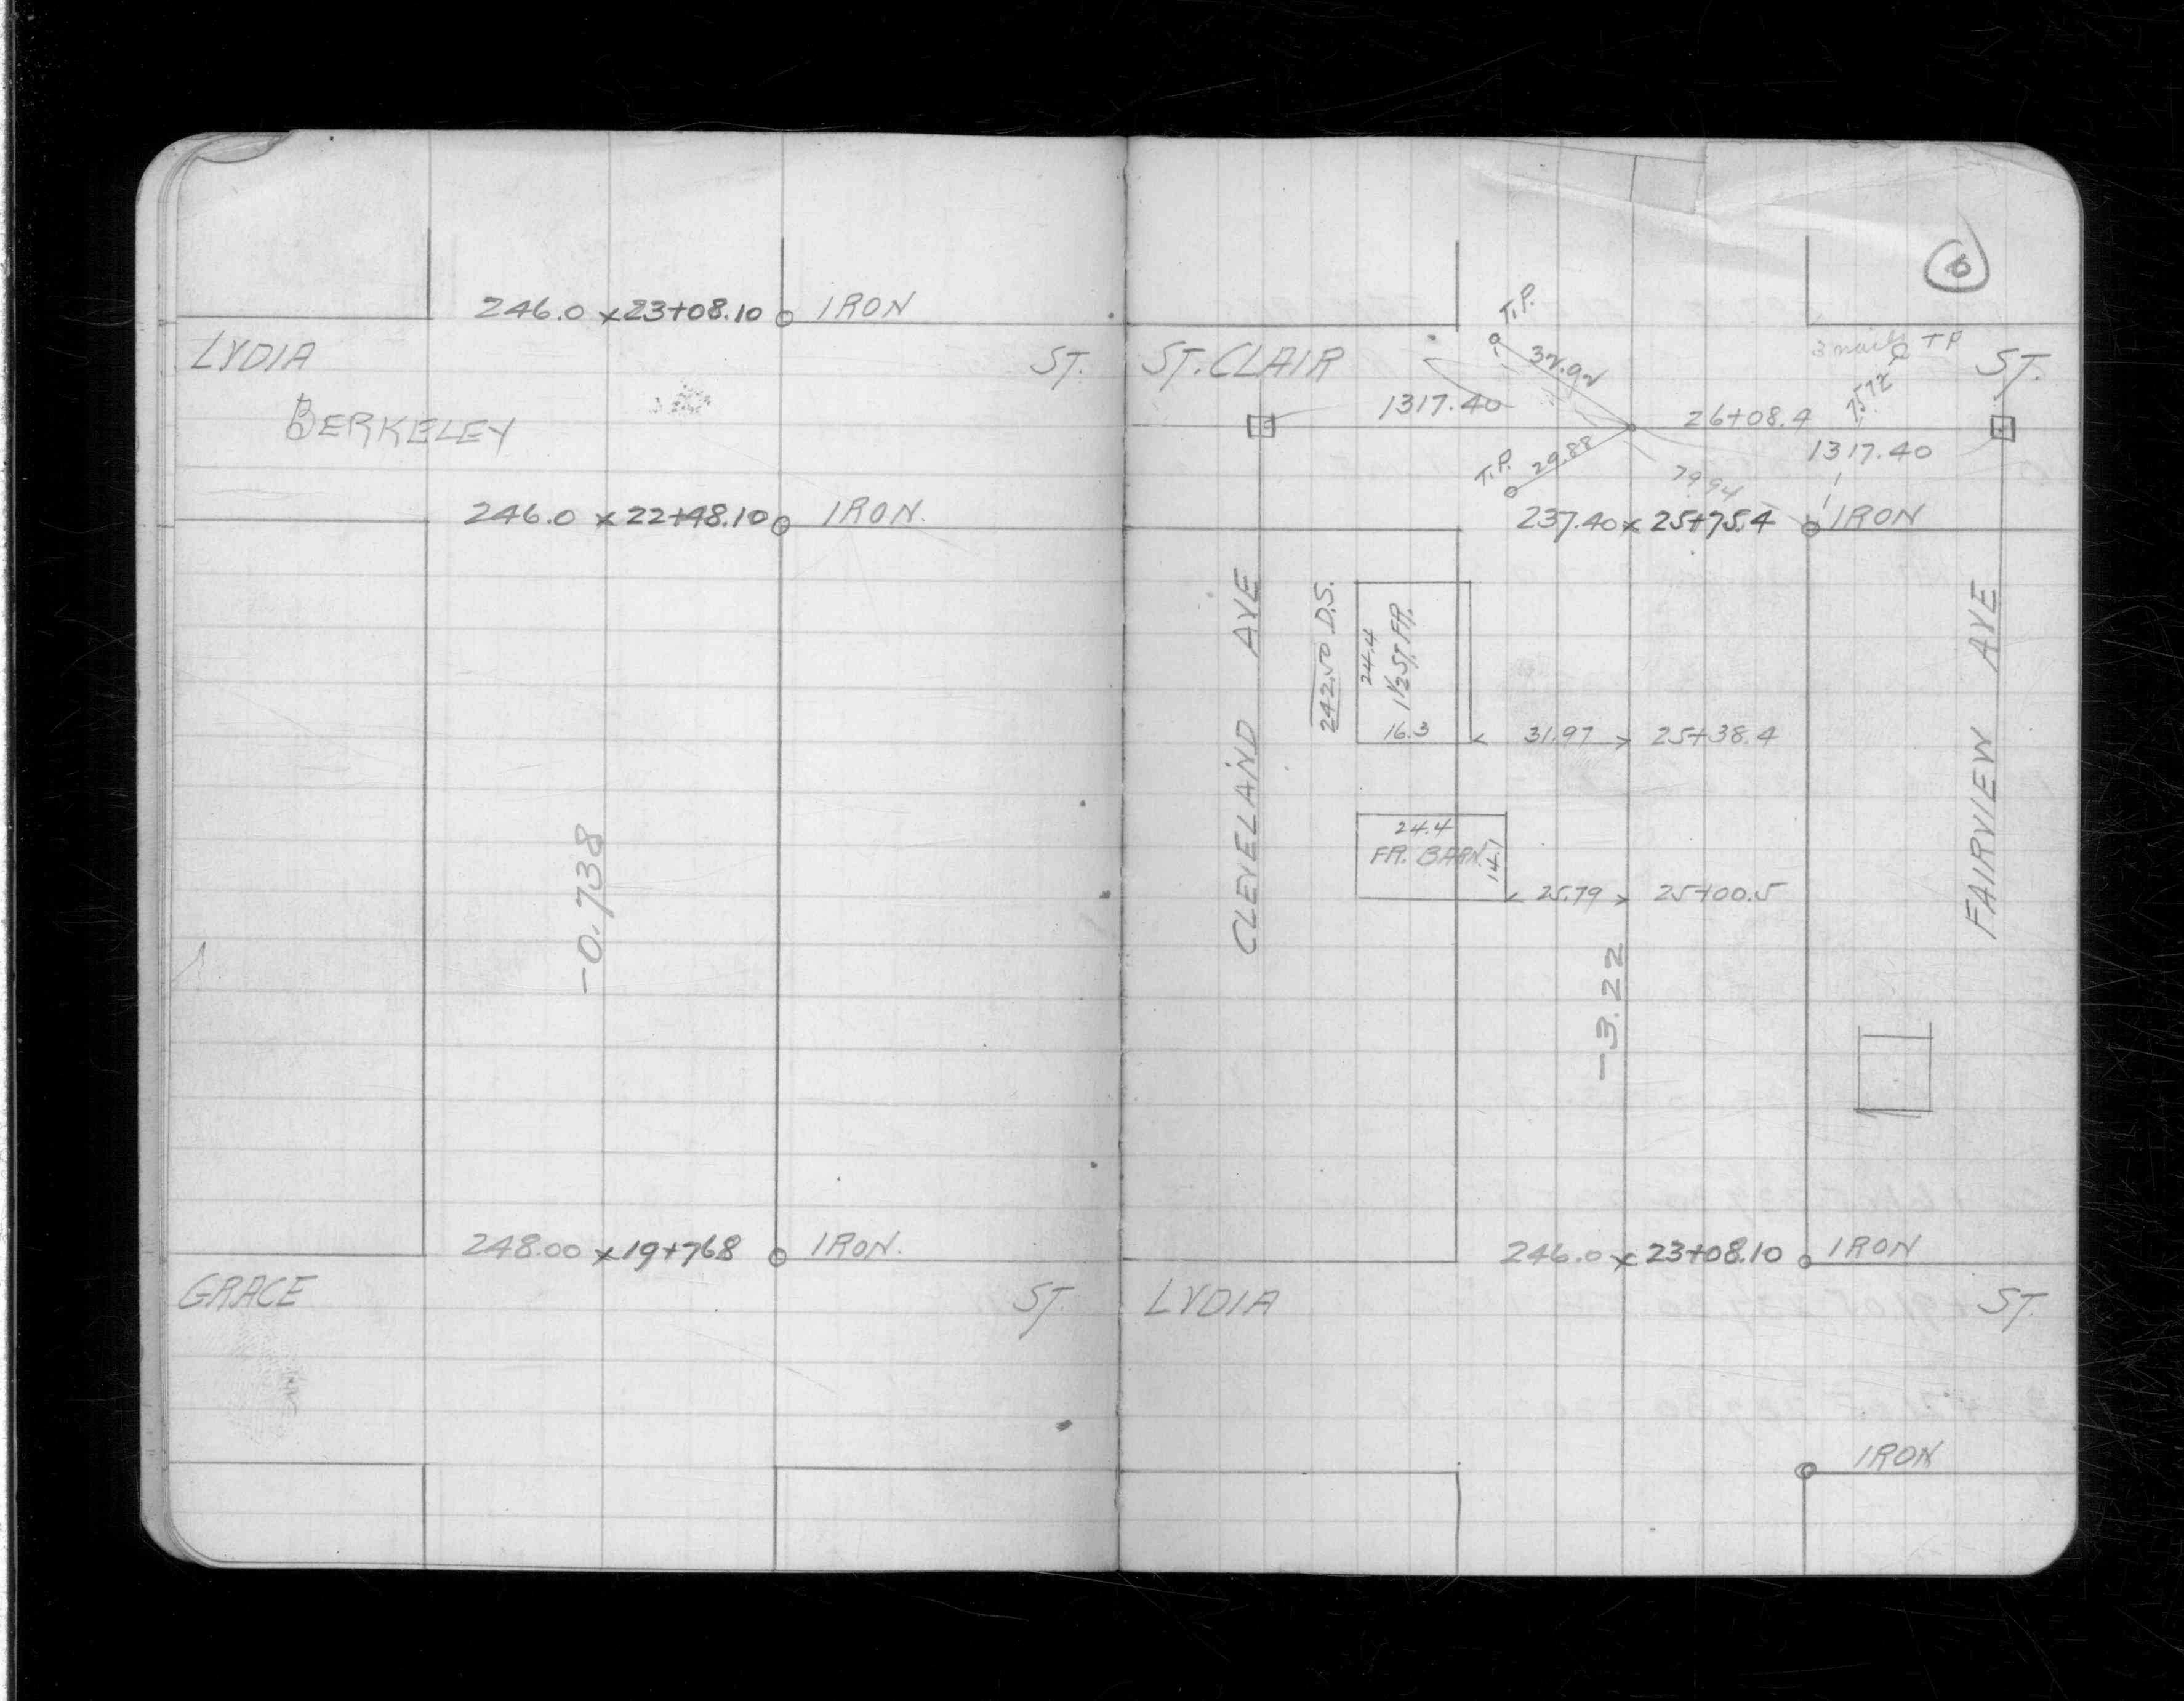 246.0 x 23+08.10 IRON
LYDIA ST.
BERKELEY
246.0 x 22+48.10 IRON.
-0.738
248.00 x 19+76.8 IRON.
GRACE ST.
6
T.P.
3 nails T.P.
ST. CLAIR ST.
32.92
1317.40
26+08.4
1317.40
T.P. 29.88
79.94
237.40 x 25+75.4 IRON
CLEVELAND AVE
242.50 D.S.
24.4
1½ ST. FR.
16.3
31.97 25+38.4
FAIRVIEW AVE
24.4
FR. BARN
14.1
25.79 25+00.5
-3.22
246.0 x 23+08.10 IRON
LYDIA ST.
IRON